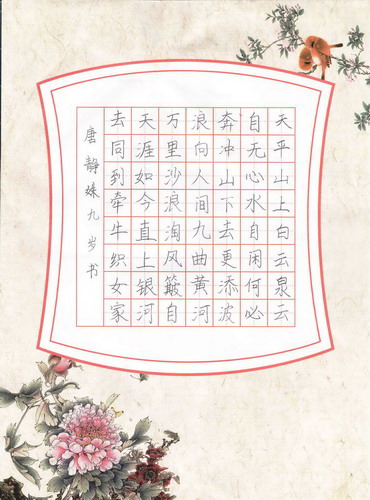 天平山上白云泉云
自无心水自闲何必
奔冲山下去更添波
浪向人间九曲黄河
万里沙浪淘风簸自
天涯如今直上银河
去同到牵牛织女家
唐静姝九岁书